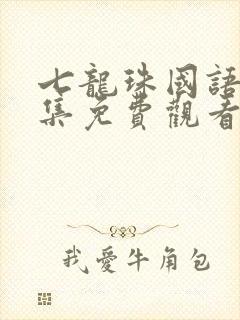 七龍珠國語
集免費觀看
我愛牛角包